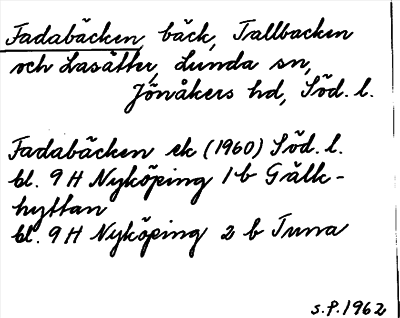 Fadabäcken, bäck, Tallbacken
och Lasätter, Lunda sn,
Jönåkers hd, Söd. l.
Fadabäcken ek (1960) Söd. l.
bl. 9 H Nyköping 1 b Gälk-
hyttan
bl. 9 H Nyköping 2 b Tuna
S.P. 1962